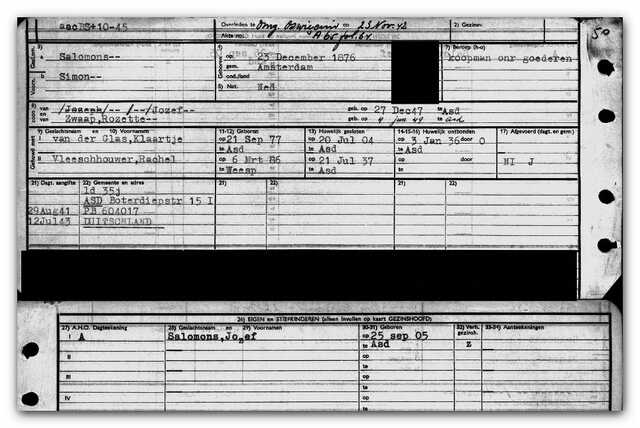 Overleden te
Akte no.
2) Gezinsh.
50
3)
Gesln.
Salomons--
4)
Geboren
op 25 December 1876
gem. Amsterdam
ond./land
7) Beroep (h-o)
koopman onr goederen
Voorn.
Simon--
5) Nat. Ned
8)
van
en
/Joseph/-- /--/Jozef--
Zwaap,Rozette--
geb. op 27 Dec47 te Asd
geb. op te Asd
Gehuwd met
9) Geslachtsnaam en 10) Voornamen
11-12) Geboren
13) Huwelijk gesloten
14-15-16) Huwelijk ontbonden
17) Afgevoerd (dagt. en gem.)
I van der Glas,Klaartje
op 21 Sep 77
te Asd
op 20 Jul 04
te Asd
op 3 Jan 36 door O
te Asd
II Vleeschhouwer,Rachel
op 6 Mrt 86
te Weesp
op 21 Jul 37
te Asd
op door
te
NI J
21) Dagt. aangifte
22) Gemeente en adres
21)
22)
21)
22)
ld 35j
ASD Boterdiepstr 15 I
29Aug41 P.B.604017
12Jul43 DUITSCHLAND
26) EIGEN en STIEFKINDEREN (alleen invullen op kaart GEZINSHOOFD)
27) A.H.O. Dagteekening
28) Geslachtsnaam en 29) Voornamen
30-31) Geboren
32) Verh. gezinsh.
33-34) Aanteekeningen
I A
Salomons,Jozef
op 25 sep 05
te Asd
z
II
op
te
III
op
te
IV
op
te